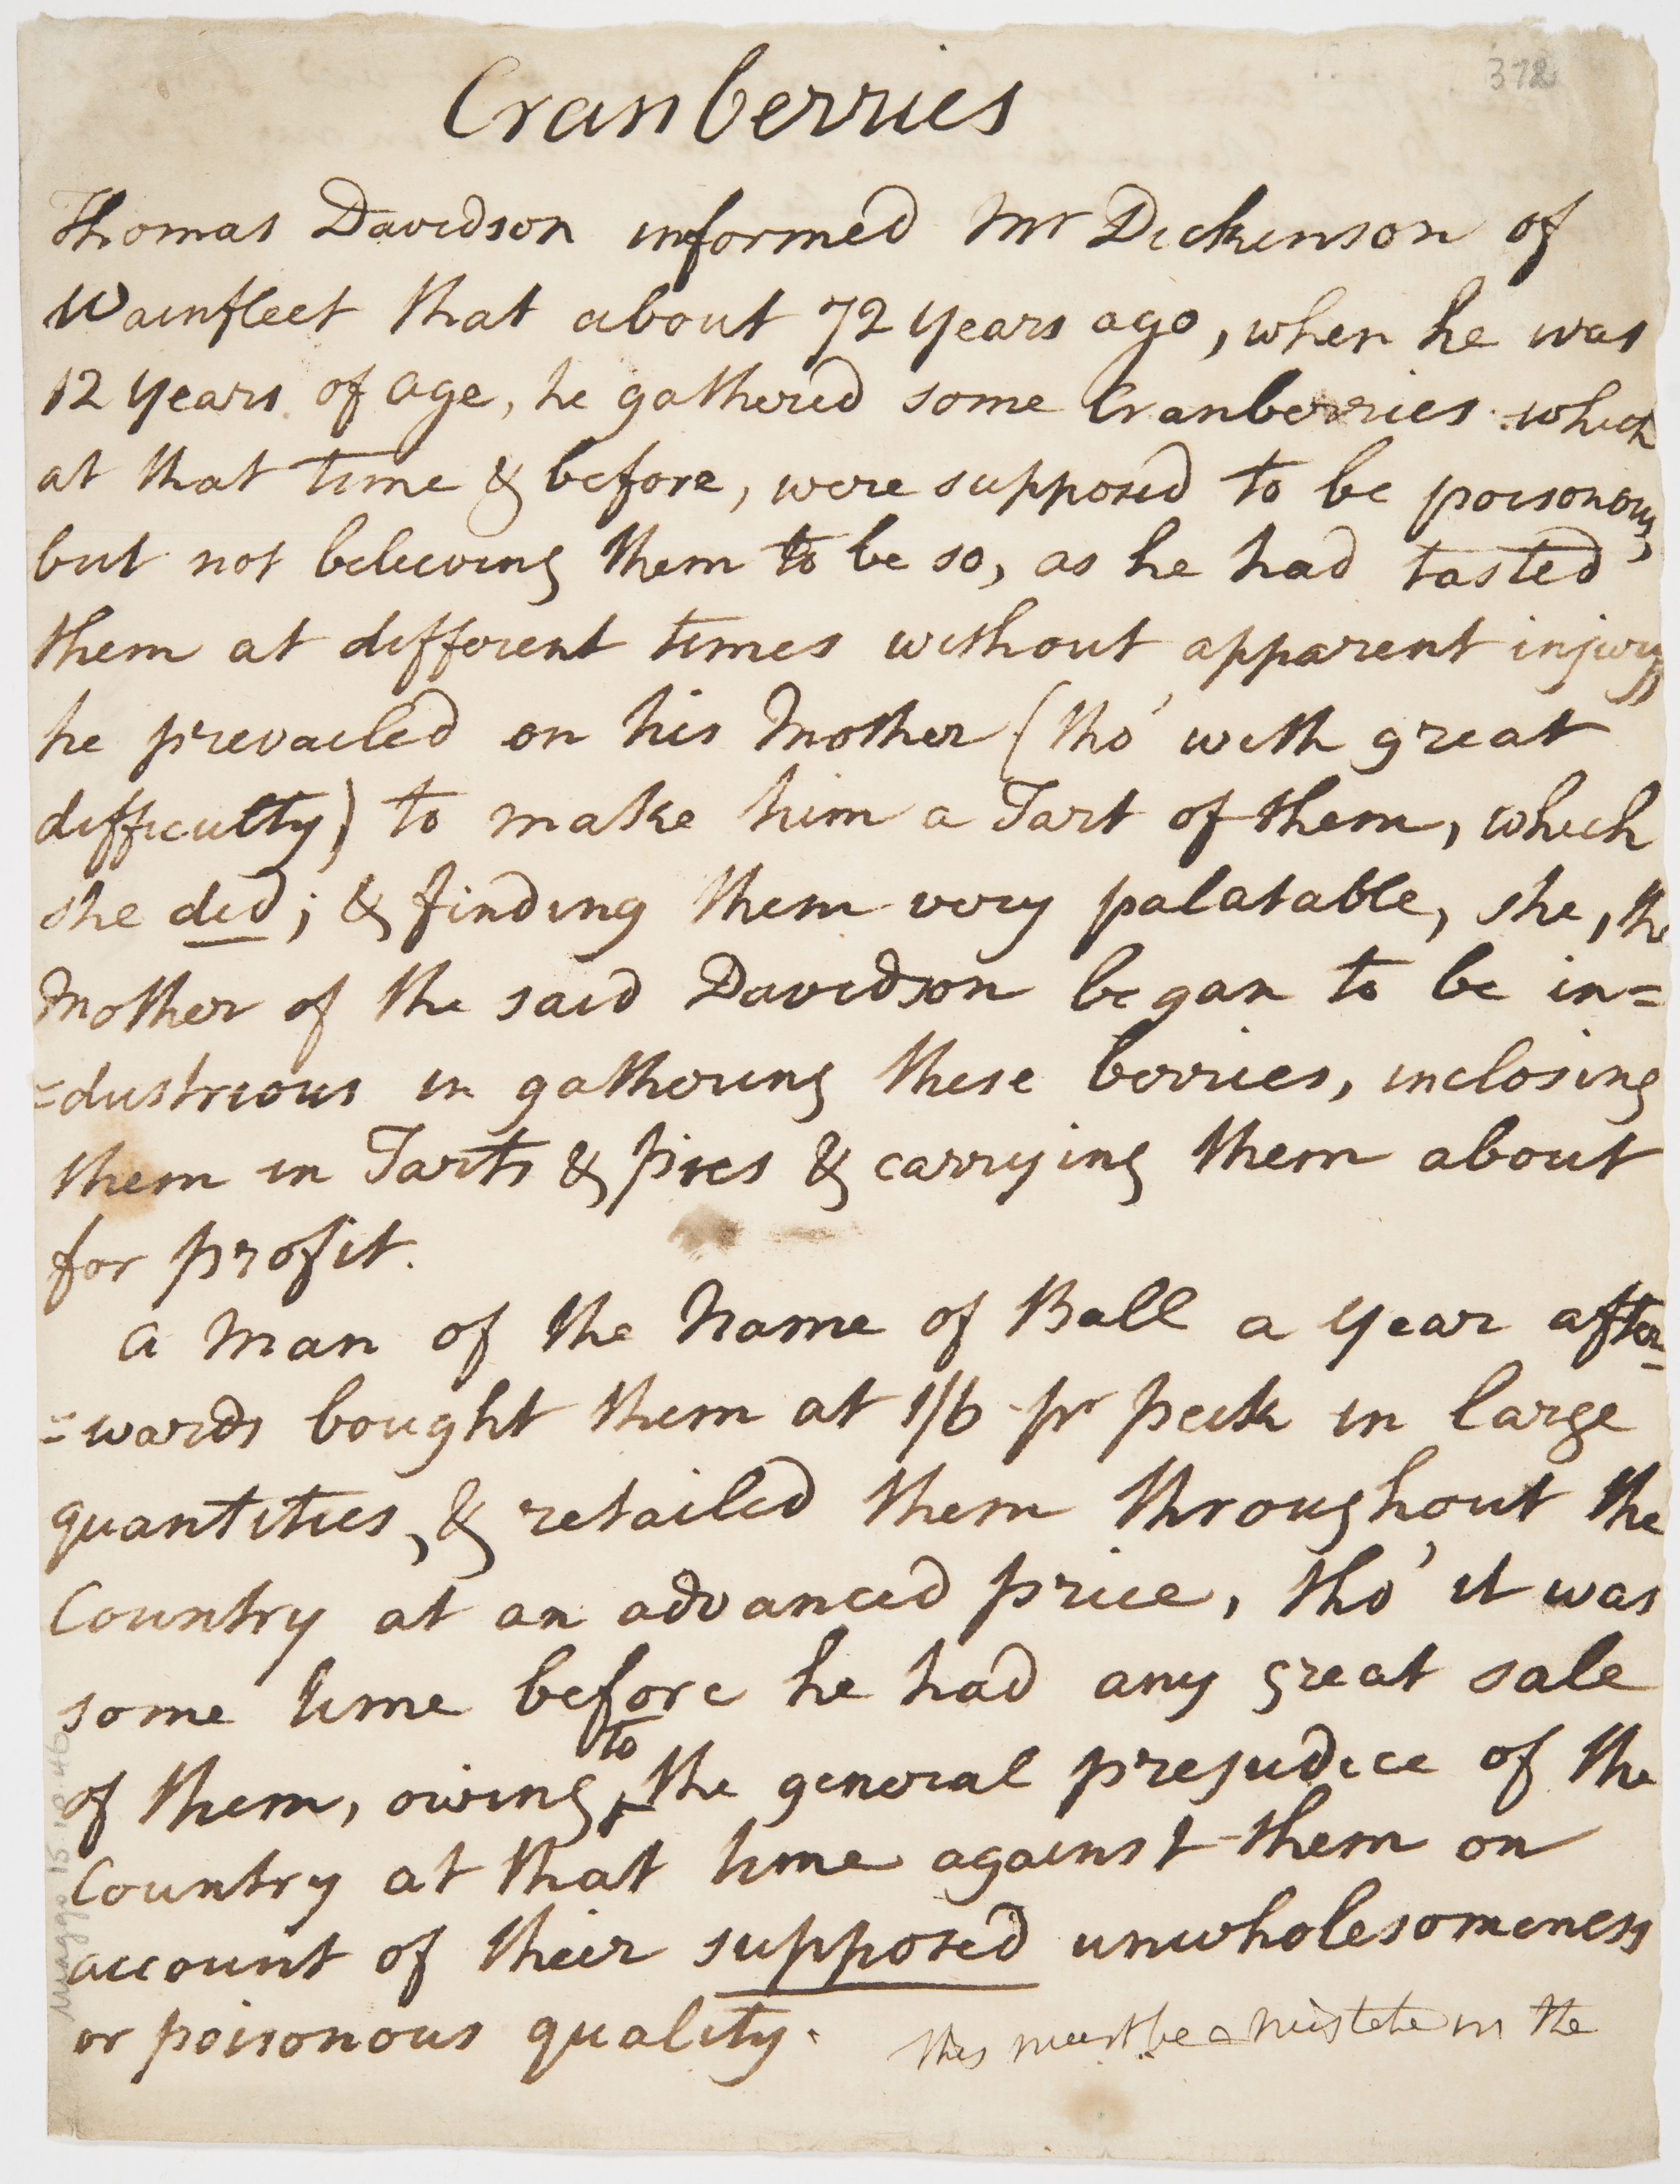 372
Cranberries
Thomas Davidson informed Mr Dickinson of
Wainfleet that about 72 years ago, when he was
12 years of age, he gathered some Cranberries which
at that time & before, were supposed to be poisonous,
but not believing them to be so, as he had tasted
them at different times without apparent injury,
he prevailed on his Mother (tho' with great
difficulty) to make him a Tart of them, which
she did; & finding them very palatable, she, the
Mother of the said Davidson began to be in=
=dustrious in gathering these berries, inclosing
them in Tarts & pies & carrying them about
for profit.
A Man of the Name of Ball a year after=
=wards bought them at 1/6 pr peck in large
quantities, & retailed them throughout the
Country at an advanced price, tho' it was
some time before he had any great sale
to
of them, owing the general prejudice of the
Country at that time against them on
account of their supposed unwholesomeness
or poisonous quality.
this must be a mistake in the
Maggs 15.10.46